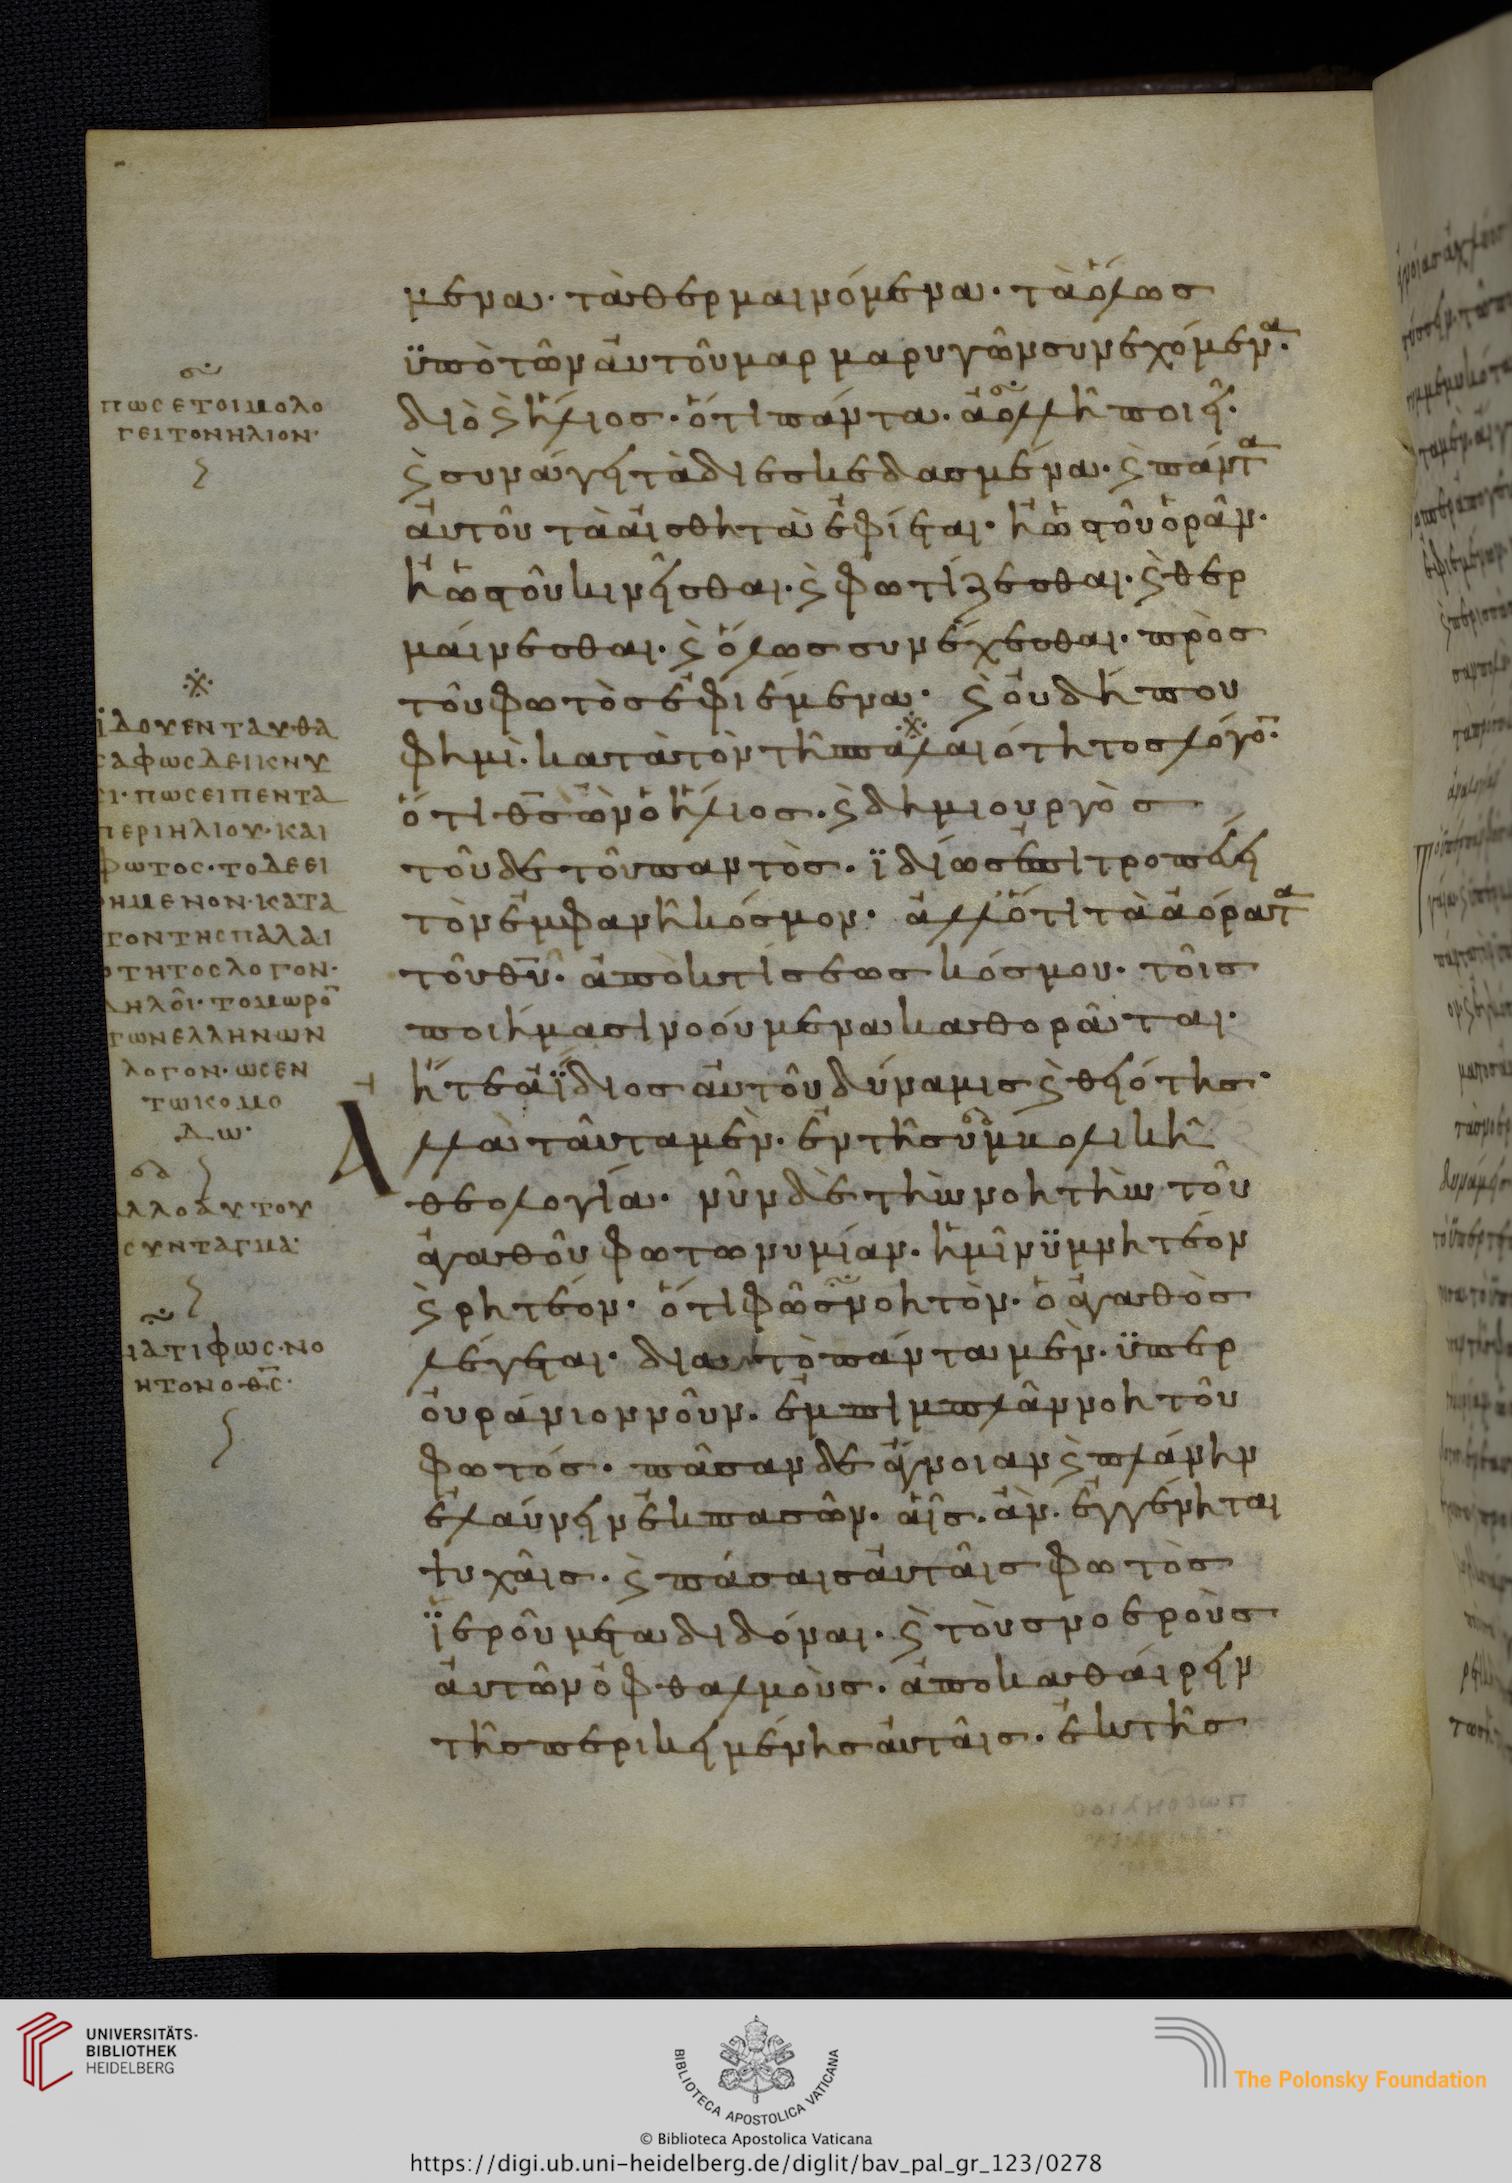 μενα· τὰ θερμαινόμενα· τὰ ὅλως
ϋπὸ τῶν αὐτοῦ μαρμαρυγῶν συνεχόμενα·
διὸ ϗ ἥλιος· ὅτι πάντα· ἀολλῆ ποιεῖ·
ϗ συνάγει τὰ διεσκεδασμένα· ϗ πάντα
αὐτοῦ τὰ αἰσθητὰ ἐφίεται· ἢ ὡς τοῦ ὁρᾶν·
ἢ ὡς τοῦ κινεῖσθαι· ϗ φωτίζεσθαι· ϗ θερ
μαίνεσθαι· ϗ ὅλως συνέχεσθαι· πρὸς
τοῦ φωτὸς ἐφιέμενα· ϗ οὐ δή που
φημὶ· κατὰ τὸν τῆς παλαιότητος λόγον·
ὅτι θς ὢν ὁ ἥλιος· ϗ δημιουργὸς
τοῦδε τοῦ παντὸς· ϊδίως ἐπιτροπεύει
τὸν ἐμφανῆ κόσμον· ἀλλ' ὅτι τὰ ἀόρατα
τοῦ θυ· ἀπὸ κτίσεως κόσμου· τοῖς
ποιήμασι νοούμενα καθορᾶται·
ἥ τε ἀΐδιος αὐτοῦ δύναμις ϗ θειότης·
Ἀλλὰ ταῦτα μὲν· ἐν τῆ συμβολικῆ
θεολογία· νῦν δὲ τὴν νοητὴν τοῦ
ἀγαθοῦ φωτωνυμίαν· ἡμῖν ϋμνητέον
ϗ ρητέον· ὅτι φῶς νοητὸν· ὁ ἀγαθὸς
λέγεται· διὰ τὸ πάντα μὲν· ϋπερ
οὐράνιον νοῦν· ἐμπιμπλᾶν νοητοῦ
φωτός· πᾶσαν δὲ ἄγνοιαν ϗ πλάνην
ἐλαύνειν ἐκ πασῶν· αἷς· ἂν· ἐγγένηται
ψυχαῖς· ϗ πάσαις αὐταῖς φωτὸς
ϊεροῦ μεταδιδόναι· ϗ τοὺς νοεροὺς
αὐτῶν ὀφθαλμοὺς· ἀποκαθαίρειν
τῆς περικειμένης αὐταῖς· ἐκ τῆς
ΠΩC ΕΤΟΙΜΟΛΟ
ΓΕΙ ΤΟΝ ΗΛΙΟΝ·
ΪΔΟΥ ΕΝΤΑΥΘΑ
CΑΦΩC ΔΕΙΚΝΥ
CΙ· ΠΩC ΕΙΠΕΝ ΤΑ
ΠΕΡΙ ΗΛΙΟΥ· ΚΑΙ
ΦΩΤΟC· ΤΟ ΔΕ ΕΙ
ΡΗΜΕΝΟΝ· ΚΑΤΑ
ΤΟΝ ΤΗC ΠΑΛΑΙ
ΟΤΗΤΟC ΛΟΓΟΝ·
ΔΗΛΟΙ· ΤΟ ΜΩΡΟΝ
ΤΩΝ ΕΛΛΗΝΩΝ
ΛΟΓΟΝ· ΩC ΕΝ
ΤΩ ΚΟΜΟ
ΔΩ·
ΑΛΛΟ ΑΥΤΟΥ
CΥΝΤΑΓΜΑ·
ΔΙΑΤΙ ΦΩC· ΝΟ
ΗΤΟΝ Ο ΘC·
UNIVERSITÄTS-
BIBLIOTHEK
HEIDELBERG
BIBLIOTECA APOSTOLICA VATICANA
The Polonsky Foundation
© Biblioteca Apostolica Vaticana
https://digi.ub.uni-heidelberg.de/diglit/bav_pal_gr_123/0278